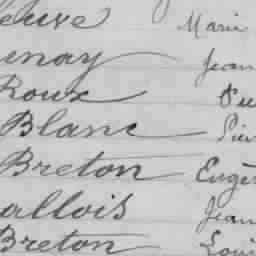 euve Marie
enay Jean
Roux
Blanc
Breton Eugè
allois Jean
Breton Loui